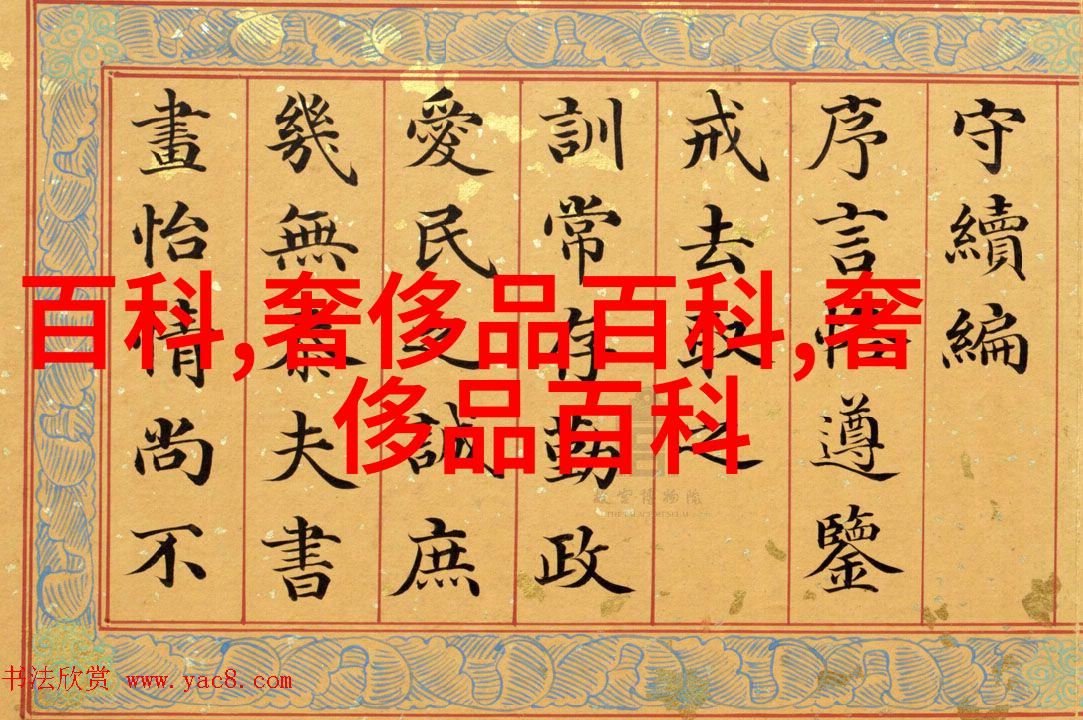 守續編
序言遵鑒
戒去取之
訓常存勤政
愛民誠庶
幾無夫書
畫怡情尚不
百科,奢侈品百科,奢
侈品百科
故宮博物院
THE PALACE MUSEUM
书法欣赏 www.yac8.com